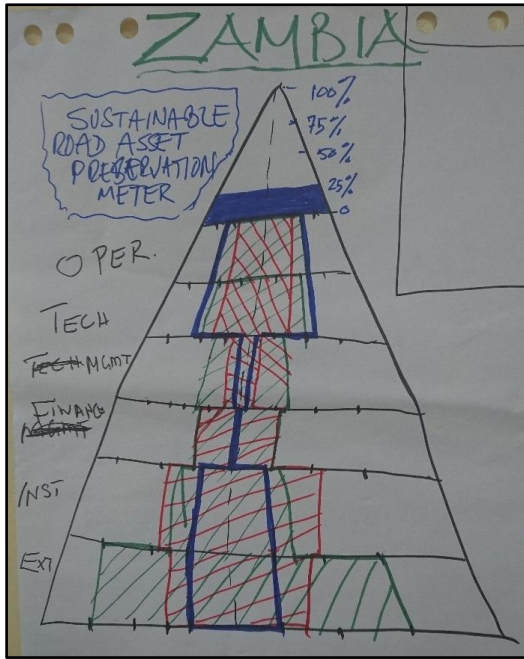 ZAMBIA
SUSTAINABLE
ROAD ASSET
PRESERVATION
METER
100%
75%
50%
25%
0
OPER.
TECH
TECH MGMT
FINANCE
MGMT
INST
EXT